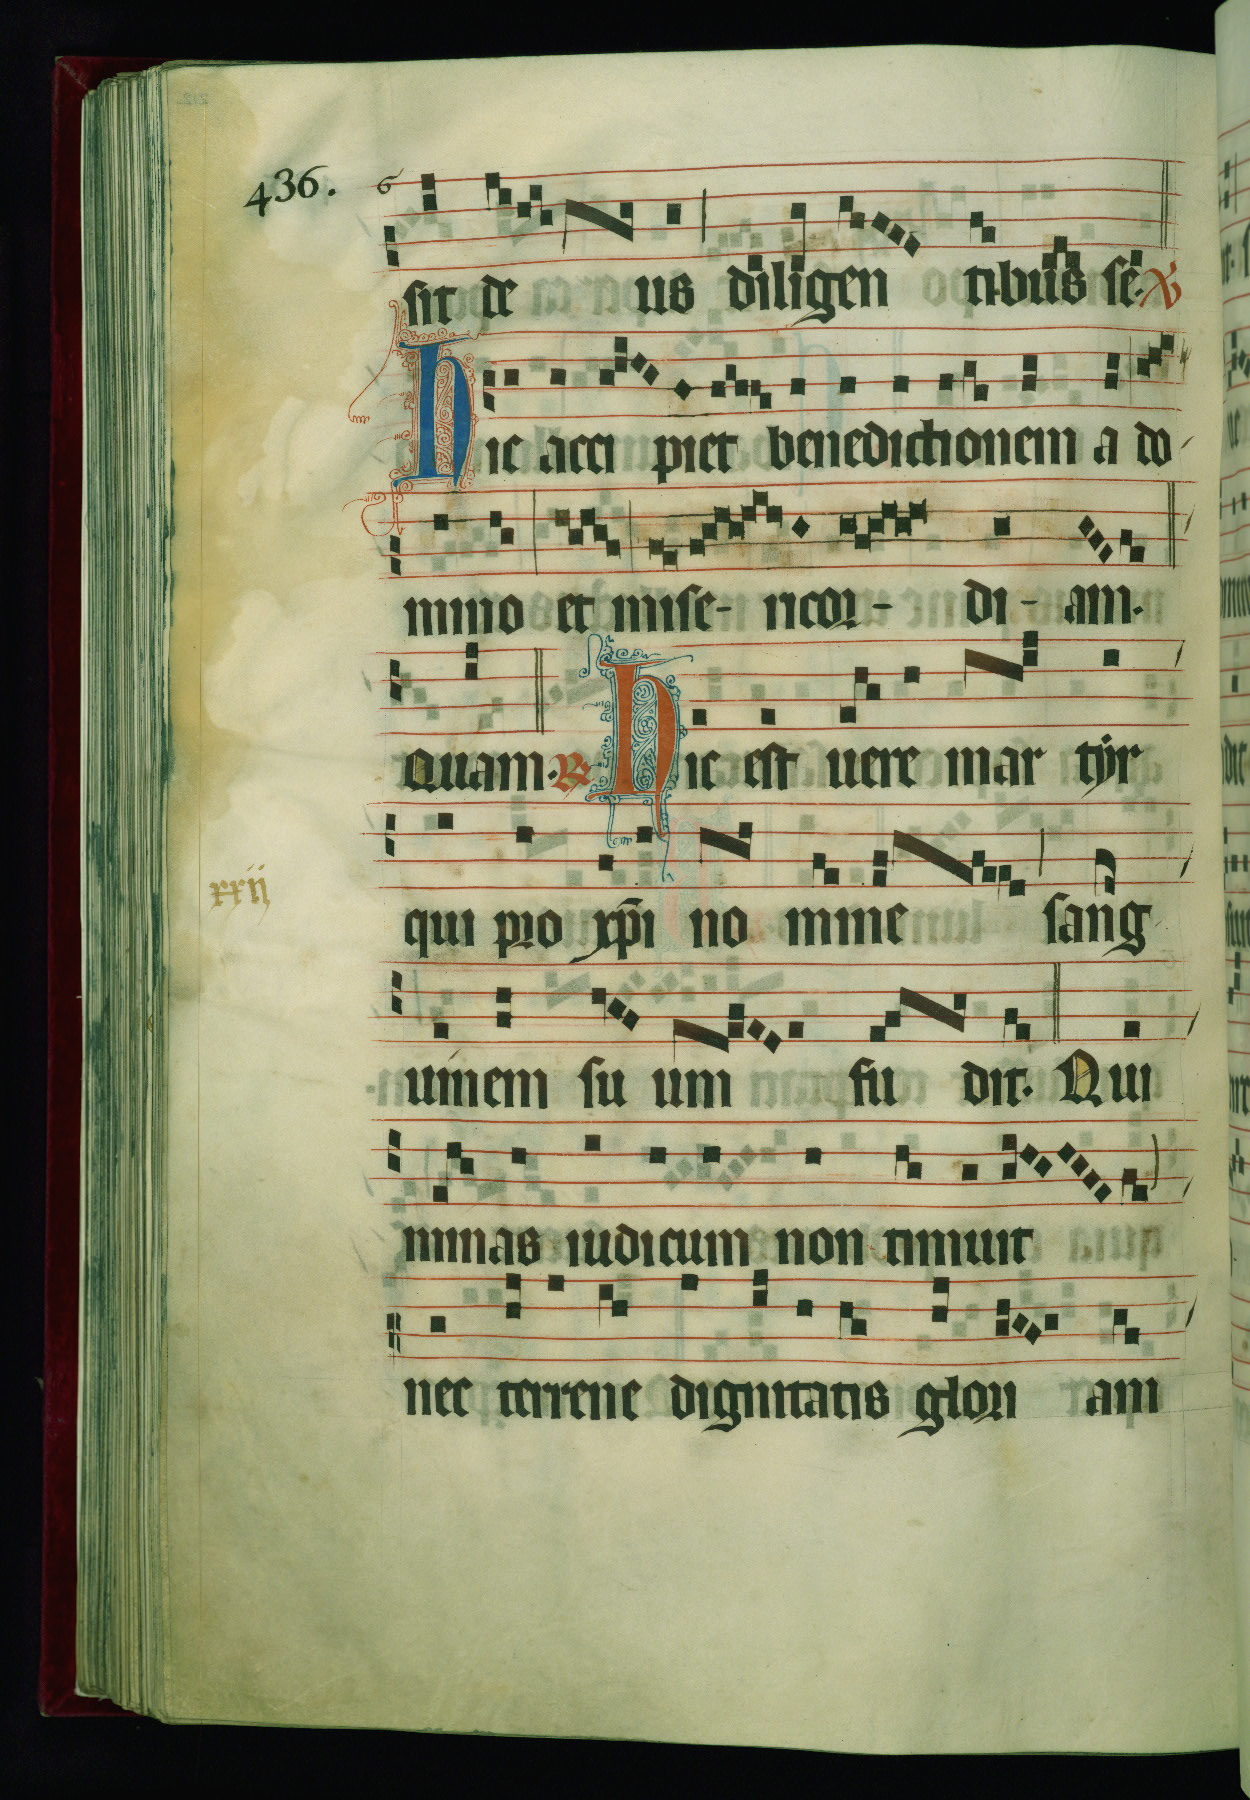 436.
sit de us diligen tibus se. ℣
hic acci piet benedictionem a do
mino et mise- ricor- di- am.
Quam. ℟ hic est uere mar tyr
qui pro xp̄i no mine sang
xxij
uinem su um fu dit. Qui
minas iudicum non timuit
nec terrene dignitatis glori am